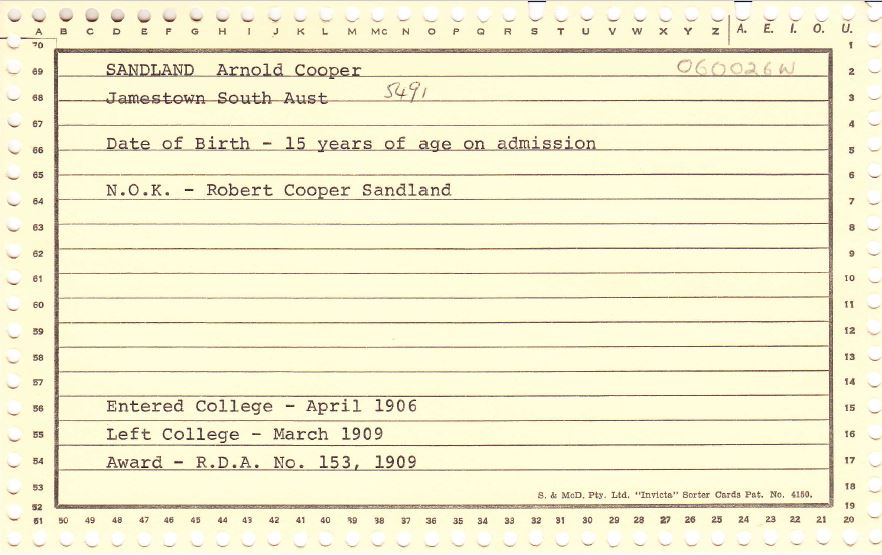 A B C D E F G H I J K L M Mc N O P Q R S T U V W X Y Z A. E. I. O. U.
70 1
69 SANDLAND Arnold Cooper 060026W 2
68 Jamestown South Aust 5491 3
67 4
66 Date of Birth - 15 years of age on admission 5
65 6
64 N.O.K. - Robert Cooper Sandland 7
63 8
62 9
61 10
60 11
59 12
58 13
57 14
56 Entered College - April 1906 15
55 Left College - March 1909 16
54 Award - R.D.A. No. 153, 1909 17
53 S. & McD. Pty. Ltd. "Invicta" Sorter Cards Pat. No. 4150. 18
52 19
51 50 49 48 47 46 45 44 43 42 41 40 39 38 37 36 35 34 33 32 31 30 29 28 27 26 25 24 23 22 21 20